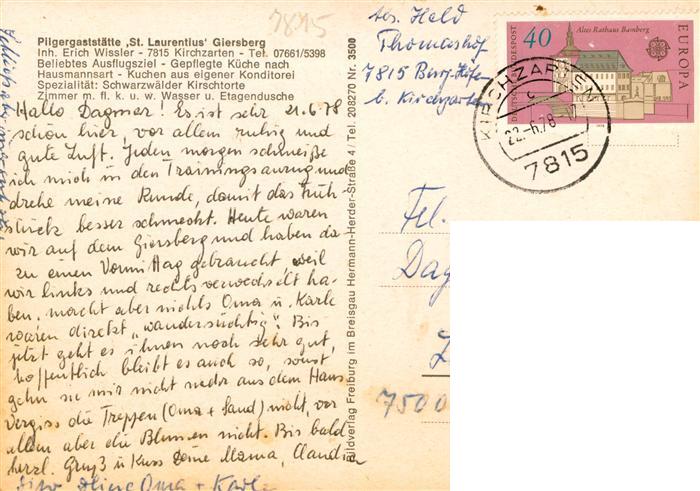 7815
Pilgergaststätte ,St. Laurentius' Giersberg
Inh. Erich Wissler - 7815 Kirchzarten - Tel. 07661/5398
Beliebtes Ausflugsziel - Gepflegte Küche nach
Hausmannsart - Kuchen aus eigener Konditorei
Spezialität: Schwarzwälder Kirschtorte
Zimmer m. fl. k. u. w. Wasser u. Etagendusche
21.6.78
Hallo Dagmar! Es ist sehr
schön hier, vor allem ruhig und
gute Luft. Jeden morgen schmeiße
ich mich in den Trainingsanzug und
drehe meine Runde, damit das Früh-
stück besser schmeckt. Heute waren
wir auf dem Giersberg und haben da
zu einen Vormittag gebraucht weil
wir links und rechts verwechselt ha-
ben, macht aber nichts Oma u. Karle
waren direkt "wandersüchtig". Bis
jetzt geht es ihnen noch sehr gut,
hoffentlich bleibt es auch so, sonst
gehn sie mir nicht mehr aus dem Haus
Vergiss die Treppen (Oma + Sand) nicht, vor
allem aber die Blumen nicht. Bis bald
herzl. Gruß u Kuss Deine Mama, Claudia
Deine Oma + Karle
Bildverlag Freiburg im Breisgau Hermann-Herder-Straße 4 / Tel. 208270 Nr. 3500
Abs. Held
Thomashof
7815 Burg-Höfen
b. Kirchzarten
DEUTSCHE BUNDESPOST
40
Altes Rathaus Bamberg
EUROPA
CEPT
KIRCHZARTEN
c
22.-6.78
7815
Frl.
Dag
7500